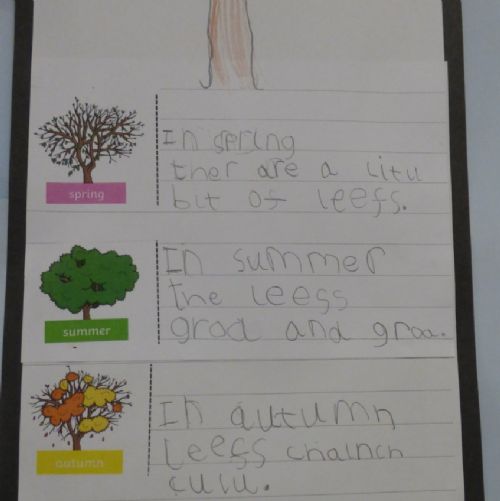 spring
In spring
ther are a litu
bit of leefs.
summer
In summer
the leess
grod and groa.
autumn
In autumn
leefs chainch
culu.